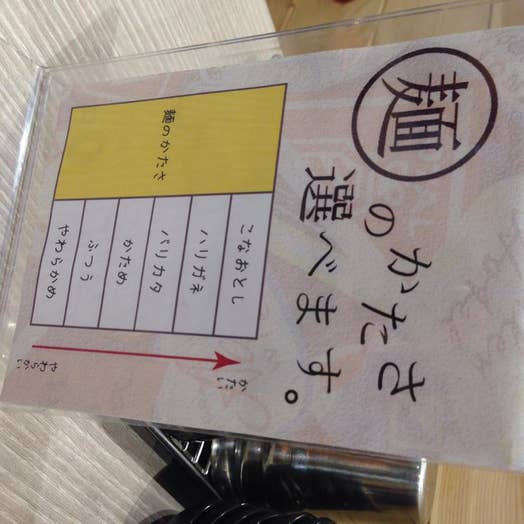 麺のかたさ
選べます。
麺のかたさ
こなおとし
ハリガネ
バリカタ
かため
ふつう
やわらかめ
かたい
やわらかい